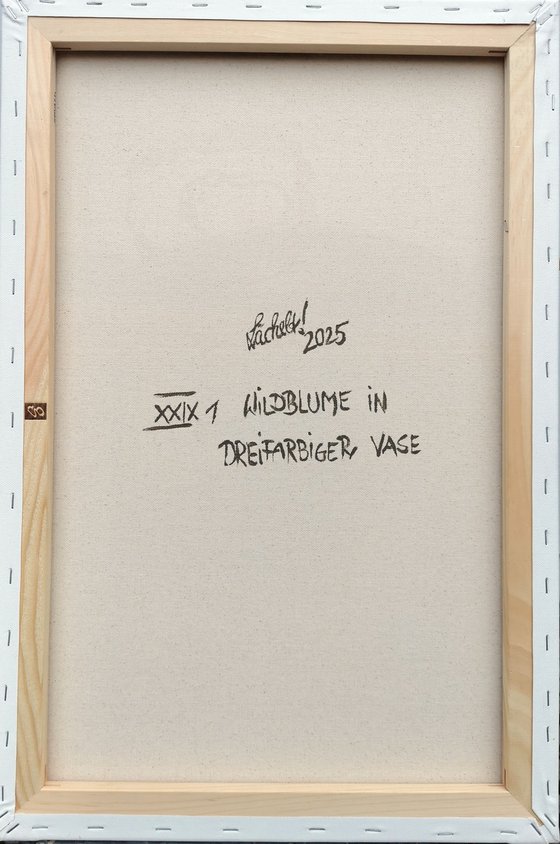 Lächelt! 2025
XXIX 1 WiLDBLUME iN
DREiFARBiGER VASE